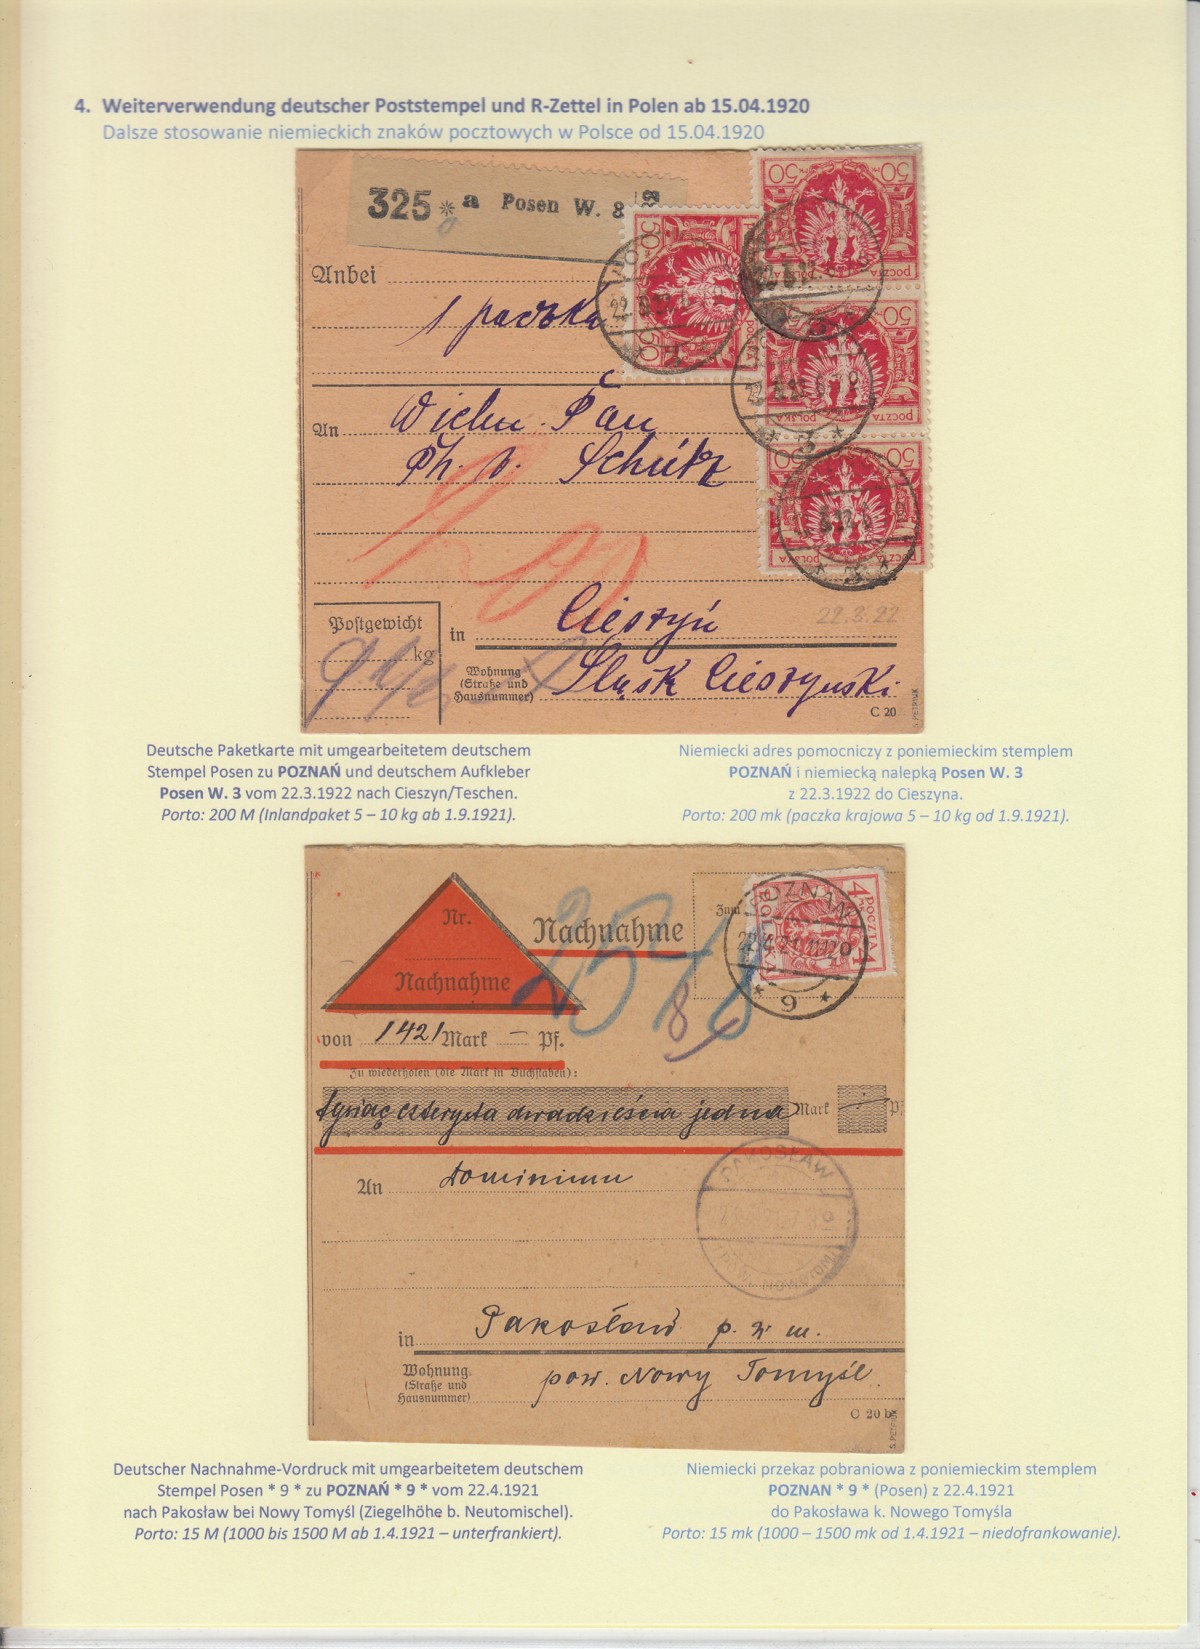 4. Weiterverwendung deutscher Poststempel und R-Zettel in Polen ab 15.04.1920
Dalsze stosowanie niemieckich znaków pocztowych w Polsce od 15.04.1920
325 * a Posen W. 8
50
50
POCZTA
POLSKA
Anbei
1 paczka
An
Wielm. Pan
Ph. v. Schütz
22.3.22
Postgewicht
kg
in
Cieszyń
Wohnung
(Straße und
Hausnummer)
Śląsk Cieszyński
C 20
S. PETRIUX
Deutsche Paketkarte mit umgearbeitetem deutschem
Stempel Posen zu POZNAŃ und deutschem Aufkleber
Posen W. 3 vom 22.3.1922 nach Cieszyn/Teschen.
Porto: 200 M (Inlandpaket 5 – 10 kg ab 1.9.1921).
Niemiecki adres pomocniczy z poniemieckim stemplem
POZNAŃ i niemiecką nalepką Posen W. 3
z 22.3.1922 do Cieszyna.
Porto: 200 mk (paczka krajowa 5 – 10 kg od 1.9.1921).
Nr.
Nachnahme
Nachnahme
Zum
POZNAŃ
22.4.21.11-12 0
* 9 *
4
POCZTA
von 1421 Mark — Pf.
Zu wiederholen (die Mark in Buchstaben):
tysiąc czterysta dwadzieścia jedna Mark
An
Dominium
PAKOSŁAW
in Pakosław p. w m.
Wohnung
(Straße und
Hausnummer)
pow. Nowy Tomyśl.
C 20 b
S. PETRIUX
Deutscher Nachnahme-Vordruck mit umgearbeitetem deutschem
Stempel Posen * 9 * zu POZNAŃ * 9 * vom 22.4.1921
nach Pakosław bei Nowy Tomyśl (Ziegelhöhe b. Neutomischel).
Porto: 15 M (1000 bis 1500 M ab 1.4.1921 – unterfrankiert).
Niemiecki przekaz pobraniowa z poniemieckim stemplem
POZNAN * 9 * (Posen) z 22.4.1921
do Pakosława k. Nowego Tomyśla
Porto: 15 mk (1000 – 1500 mk od 1.4.1921 – niedofrankowanie).